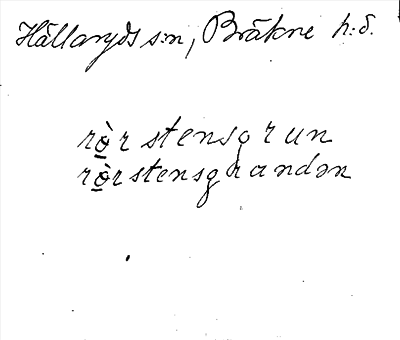 Hällaryds s:n, Bräkne h:d.
rò̱rstensgrun
rò̱rstensgrandən